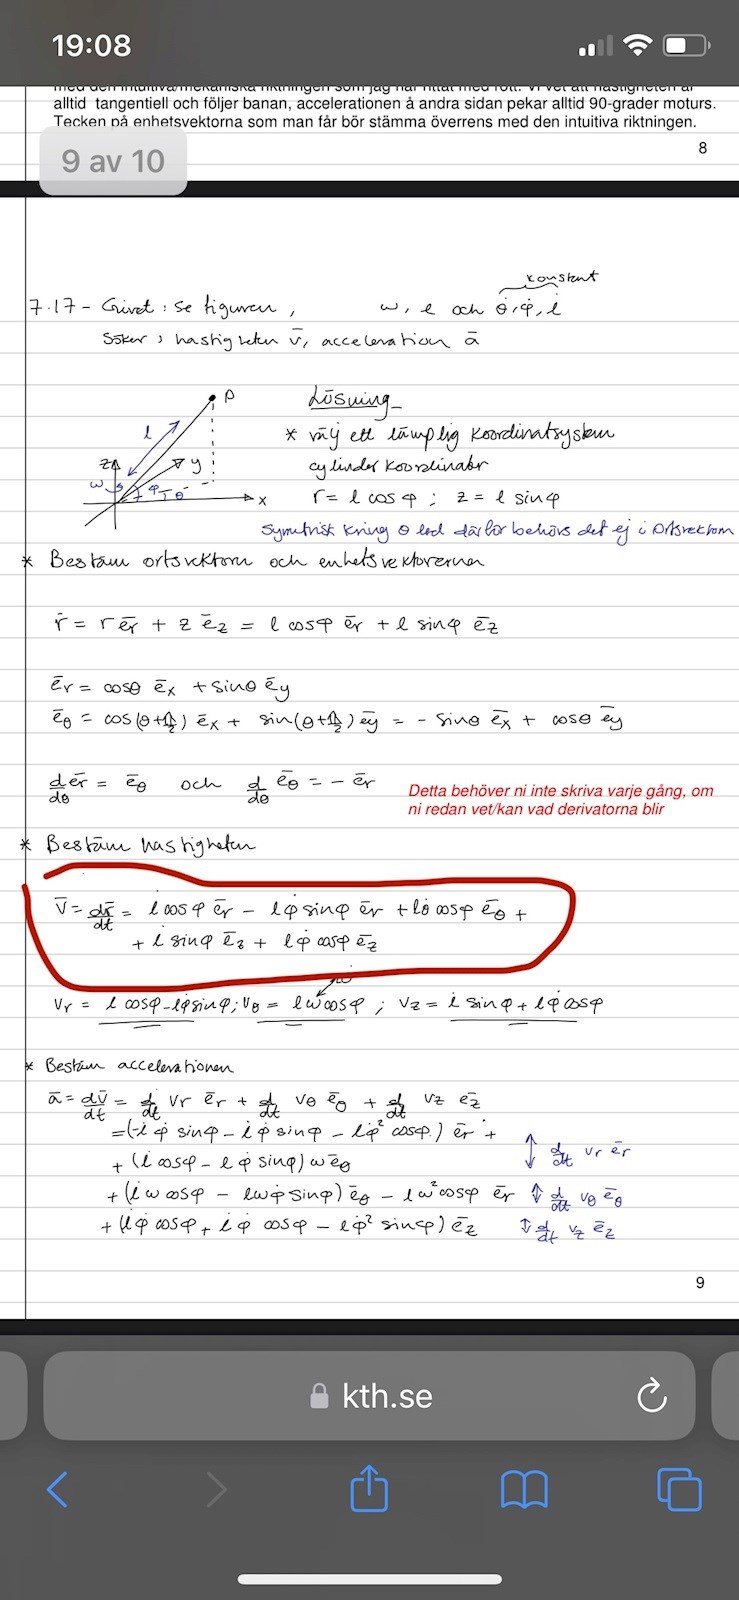 19:08
med den intuitiva/mekaniska riktningen som jag har ritat med rött. Vi vet att hastigheten är
alltid tangentiell och följer banan, accelerationen å andra sidan pekar alltid 90-grader moturs.
Tecken på enhetsvektorna som man får bör stämma överrens med den intuitiva riktningen.
8
9 av 10
konstant
7.17 - Givet: se figuren, ω, l och θ̇, φ̇, l̇
Söker: hastigheten v̄, acceleration ā
P
l
z
y
ω
φ
θ
x
Lösning
* välj ett lämplig koordinatsystem
cylinder koordinater
r = l cos φ ; z = l sin φ
Symetrisk kring θ led därför behövs det ej i Ortsvektorn
* Bestäm ortsvektorn och enhetsvektorerna
r̄ = r ēr + z ēz = l cosφ ēr + l sinφ ēz
ēr = cosθ ēx + sinθ ēy
ēθ = cos(θ+π/2) ēx + sin(θ+π/2) ēy = - sinθ ēx + cosθ ēy
d/dθ ēr = ēθ och d/dθ ēθ = - ēr
Detta behöver ni inte skriva varje gång, om
ni redan vet/kan vad derivatorna blir
* Bestäm hastigheten
v̄ = dr̄/dt = l̇ cosφ ēr - lφ̇ sinφ ēr + lθ̇ cosφ ēθ +
+ l̇ sinφ ēz + lφ̇ cosφ ēz
vr = l̇ cosφ - lφ̇ sinφ ; vθ = lω cosφ ; vz = l̇ sinφ + lφ̇ cosφ
* Bestäm accelerationen
ā = dv̄/dt = d/dt vr ēr + d/dt vθ ēθ + d/dt vz ēz
= (-l̇ φ̇ sinφ - l̇ φ̇ sinφ - lφ̇² cosφ) ēr +
+ (l̇ cosφ - lφ̇ sinφ) ω ēθ
d/dt vr ēr
+ (l̇ω cosφ - lωφ̇ sinφ) ēθ - lω² cosφ ēr
d/dt vθ ēθ
+ (l̇φ̇ cosφ + l̇φ̇ cosφ - lφ̇² sinφ) ēz
d/dt vz ēz
9
kth.se